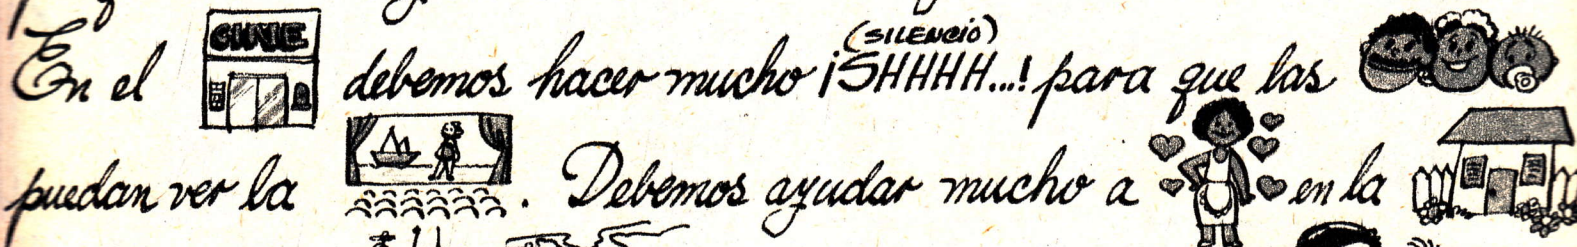 En el CINE debemos hacer mucho (SILENCIO) ¡SHHHH...! para que las
puedan ver la . Debemos ayudar mucho a en la